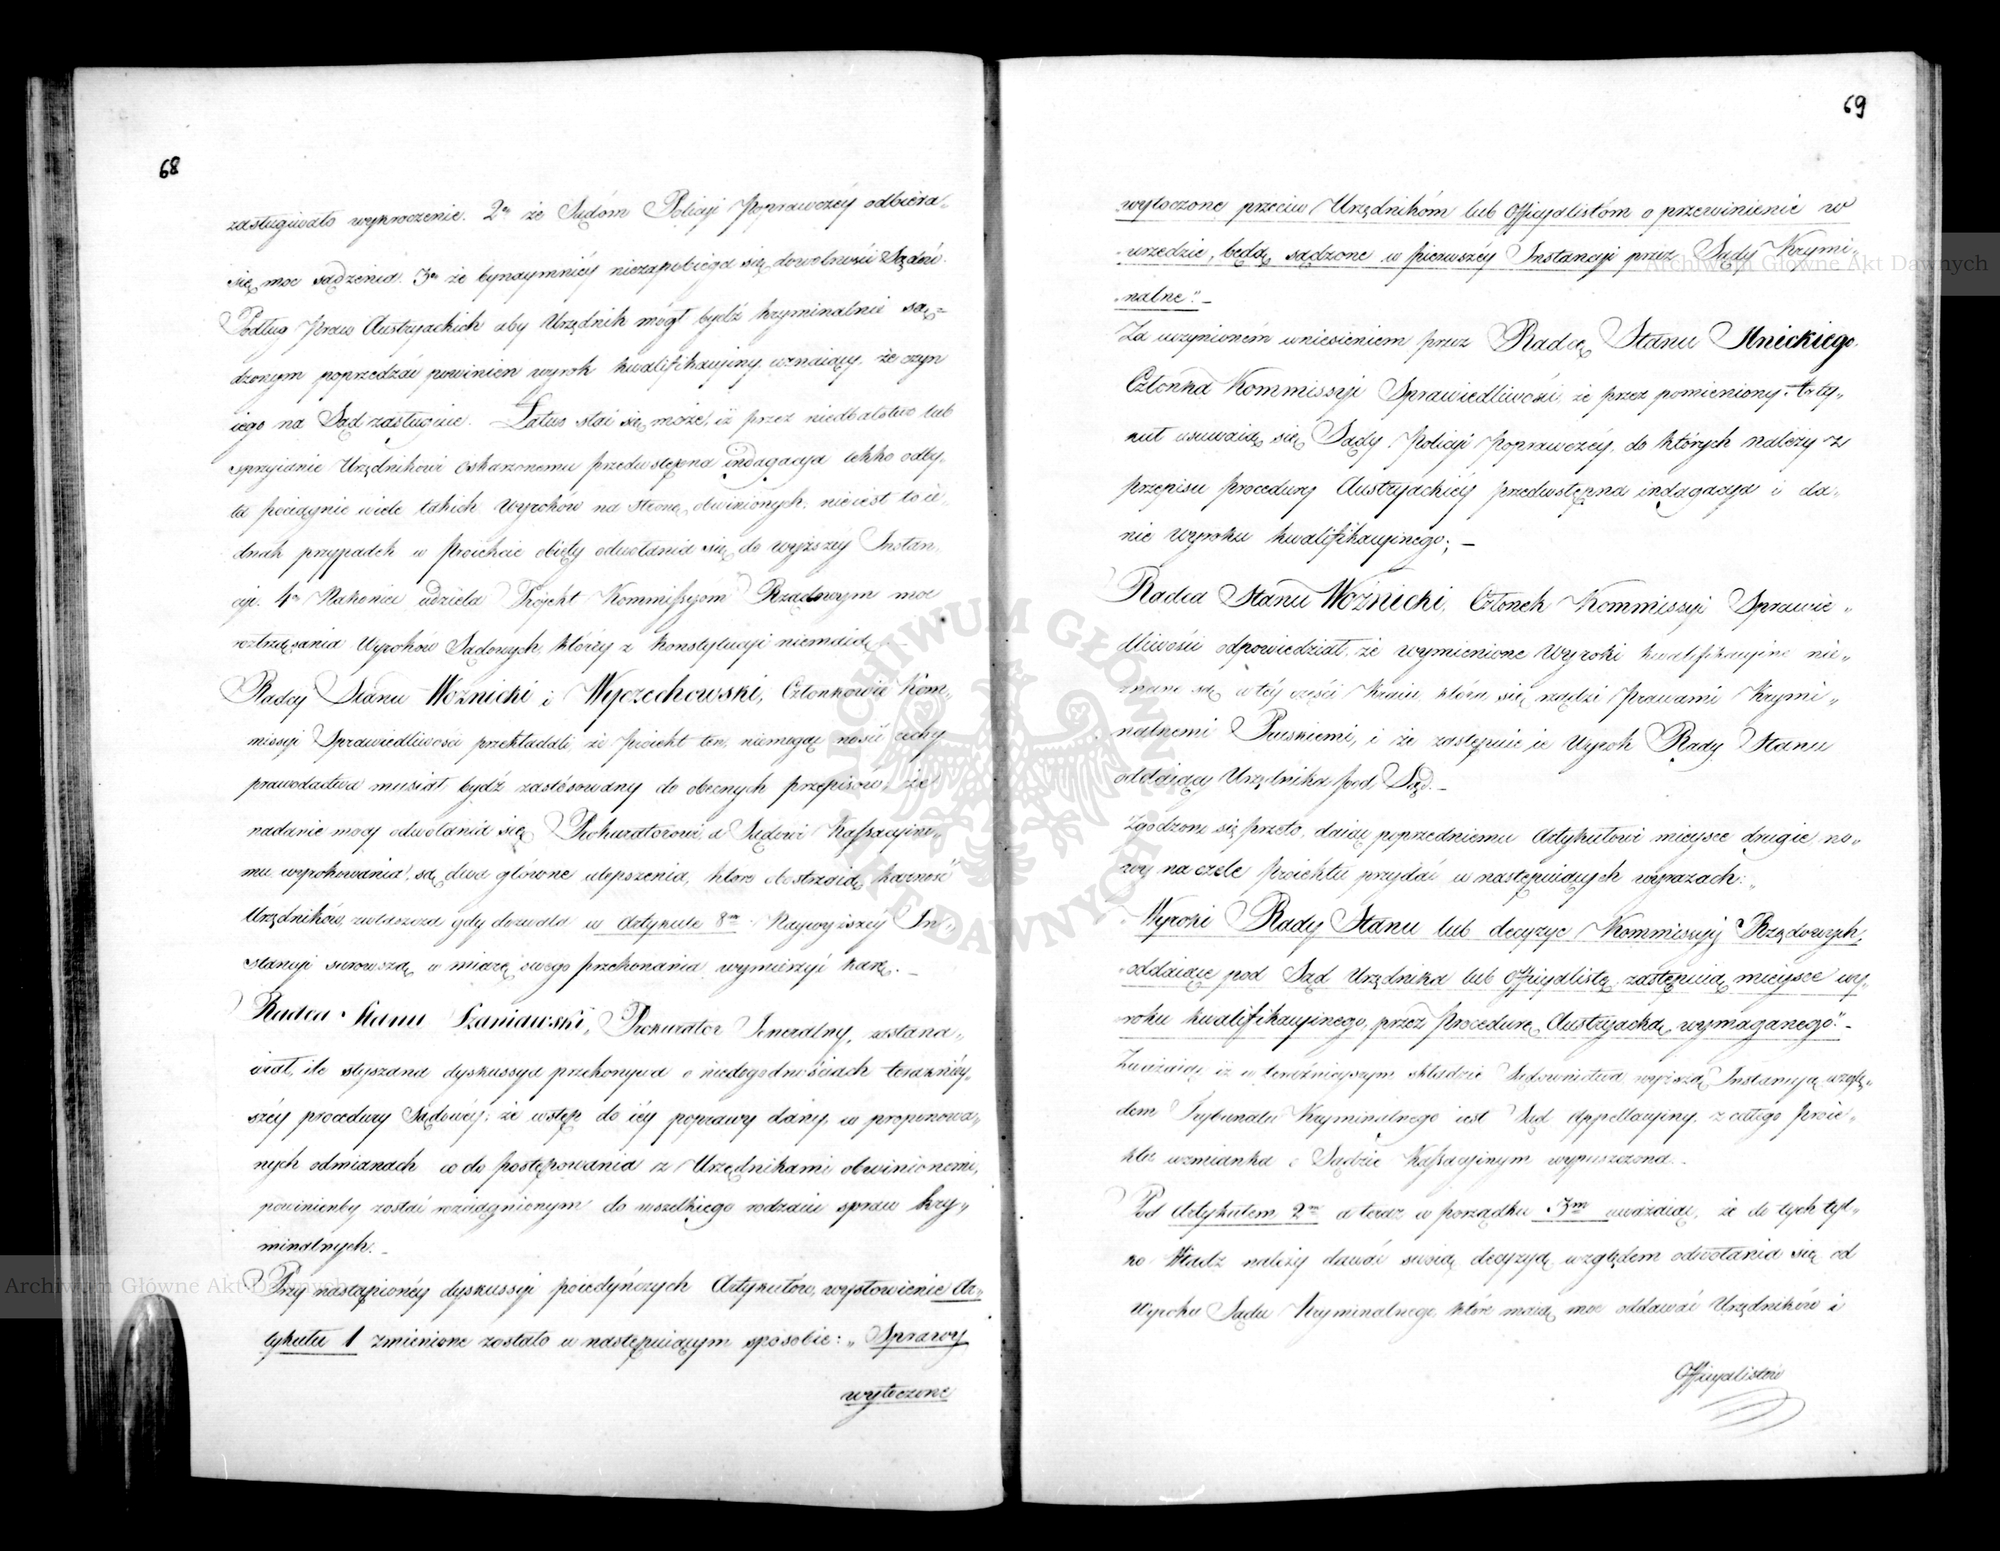 68
zasługiwało wykroczenie. 2re że Sądóm Policyi Poprawczéy odbiéra„
się moc sądzenia. 3cie że bynaymniéy niezapobiega się dowolności Sądów.
Podług Praw Austryackich aby Urzędnik mógł bydź kryminalnie są„
dzonym poprzedzać powinien wyrok kwalifikacyiny uznaiący, że czyn
iego na Sąd zasługuie. Łatwo stać się może, iż przez niedbalstwo lub
sprzyianie Urzędnikowi oskarżonemu przedwstępna indagacya lekko odby„
ta pociągnie wiele takich Wyroków na stronę obwinionych; nieiest to ie„
dnak przypadek w Proiekcie obięty odwołania się do wyższéy Instan„
cyi. 4te Nakoniec udziela Projekt Kommissyom Rządowym moc
roztrząsania Wyroków Sądowych, któréy z konstytucyi niemaią.
Radcy Stanu Woźnicki i Wyczechowski, Członkowie Kom„
missyi Sprawiedliwości przekładali że proiekt ten, niemogąc nosić cechy
prawodactwa musiał bydź zastósowany do obecnych przepisów, że
nadanie mocy odwołania się Prokuratorowi a Sądowi Kassacyine„
mu wyrokowania, są dwa główne ulepszenia, które obostrzaią karność
Urzędników, zwłaszcza gdy dozwala w Artykule 8m Naywyższéy In„
stancyi surowszą w miarę swego przekonania wymierzyć karę. –
Radca Stanu Szaniawski, Prokurator Jeneralny, zastana„
wiał, ile słyszana dyskussya przekonywa o niedogodnościach teraźniéy„
széy procedury Sądowéy; że wstęp do iéy poprawy dany, w proponowa„
nych odmianach co do postępowania z Urzędnikami obwinionemi,
powinienby zostać rozciągnionym do wszelkiego rodzaiu spraw kry„
minalnych. –
Przy nastąpionéy dyskussyi poiedyńczych Artykułów, wysłowienie Ar„
tykułu 1 zmienione zostało w następuiącym sposobie: „Sprawy
wytoczone
69
wytoczone przeciw Urzędnikóm lub Officyalistóm o przewinienie w
„urzędzie, będą sądzone w pierwszéy Instancyi przez Sądy Krymi„
„nalne”. –
Za uczynioném wniesieniem przez Radcę Stanu Mnickiego
Członka Kommissyi Sprawiedliwości że przez pomieniony Arty„
kuł usuwaią się Sądy Policyi Poprawczéy, do których należy z
przepisu procedury Austryackiéy przedwstępna indagacya i da„
nie Wyroku kwalifikacyinego; –
Radca Stanu Woźnicki, Członek Kommissyi Sprawie„
dliwości odpowiedział, że wymienione Wyroki kwalifikacyine nie„
znane są w téy części Kraiu, która się rządzi Prawami Krymi„
nalnemi Pruskiemi, i że zastępuie ie Wyrok Rady Stanu
oddaiący Urzędnika pod Sąd. –
Zgodzono się przeto, daiąc poprzedniemu Artykułowi mieysce drugie no„
wy na czele Proiektu przydać w następuiących wyrazach: „
„Wyroki Rady Stanu lub decyzye Kommissyy Rządowych,
„oddaiące pod Sąd Urzędnika lub Officyalistę, zastępuią mieysce wy„
„roku kwalifikacyinego, przez Procedurę Austryacką wymaganego”. –
Zważaiąc iż w teraźnieyszym składzie Sądownictwa wyższą Instancyą wzglę„
dem Trybunału Kryminalnego iest Sąd Appellacyiny, z całego Proie„
ktu wzmianka o Sądzie Kassacyinym wypuszczona. –
Pod Artykułem 2m a teraz w porządku 3m uważaiąc, że do tych tyl„
ko Władz należy dawać swoią decyzyą względem odwołania się od
Wyroku Sądu Kryminalnego, które maią moc oddawać Urzędników i
Officyalistów
Archiwum Główne Akt Dawnych
Archiwum Główne Akt Dawnych
ARCHIWUM GŁÓWNE AKT DAWNYCH